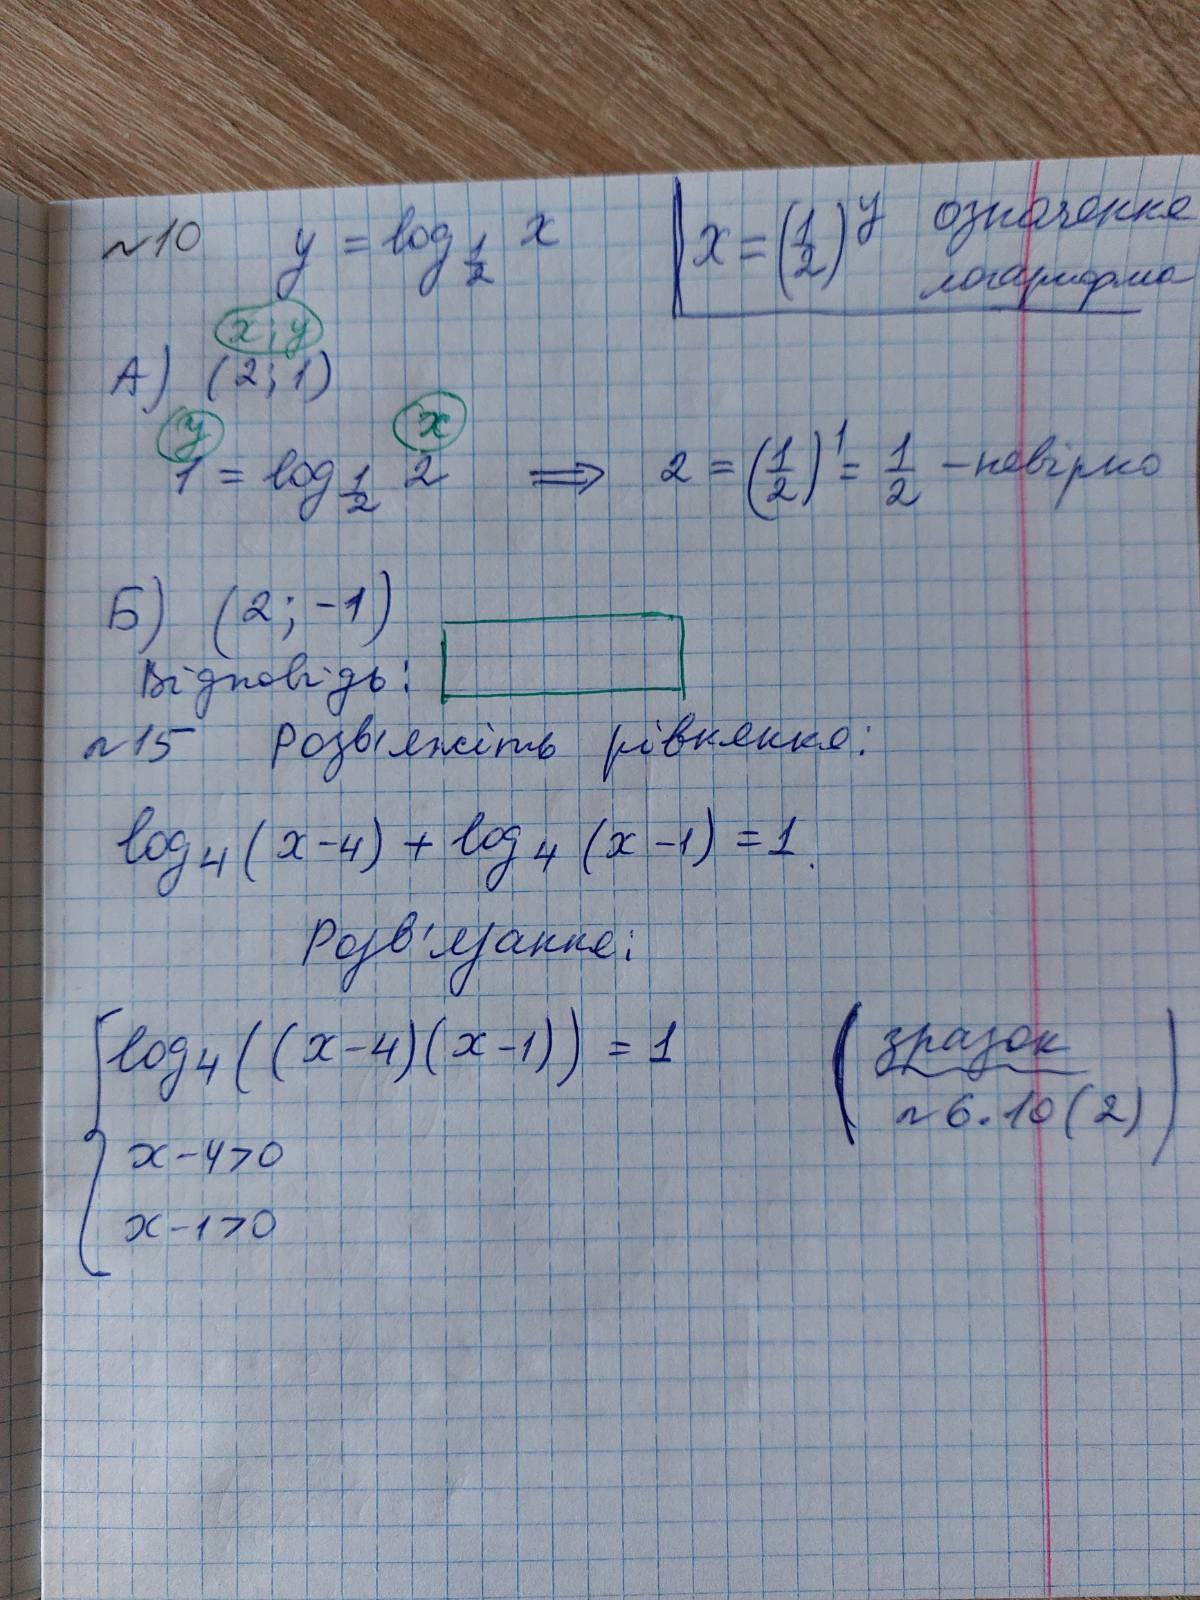 №10 y = log_{1/2} x | x = (1/2)^y означення
логарифма
x; y
А) (2; 1)
y x
1 = log_{1/2} 2 ⟹ 2 = (1/2)^1 = 1/2 – невірно
Б) (2; -1)
Відповідь:
№15 Розв'яжіть рівняння:
log_4 (x-4) + log_4 (x-1) = 1.
Розв'язання:
log_4 ((x-4)(x-1)) = 1 (зразок
№6.10 (2))
x-4>0
x-1>0